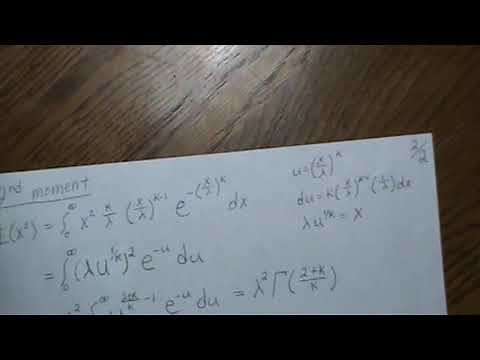 2/2
2nd moment
E(x²) = ∫₀^∞ x² k/λ (x/λ)^(k-1) e^(-(x/λ)^k) dx
u = (x/λ)^k
du = k(x/λ)^(k-1) (1/λ) dx
λu^(1/k) = x
= ∫₀^∞ (λu^(1/k))² e^(-u) du
² ∫₀^∞ u^((2+k)/k - 1) e^(-u) du = λ² Γ((2+k)/k)